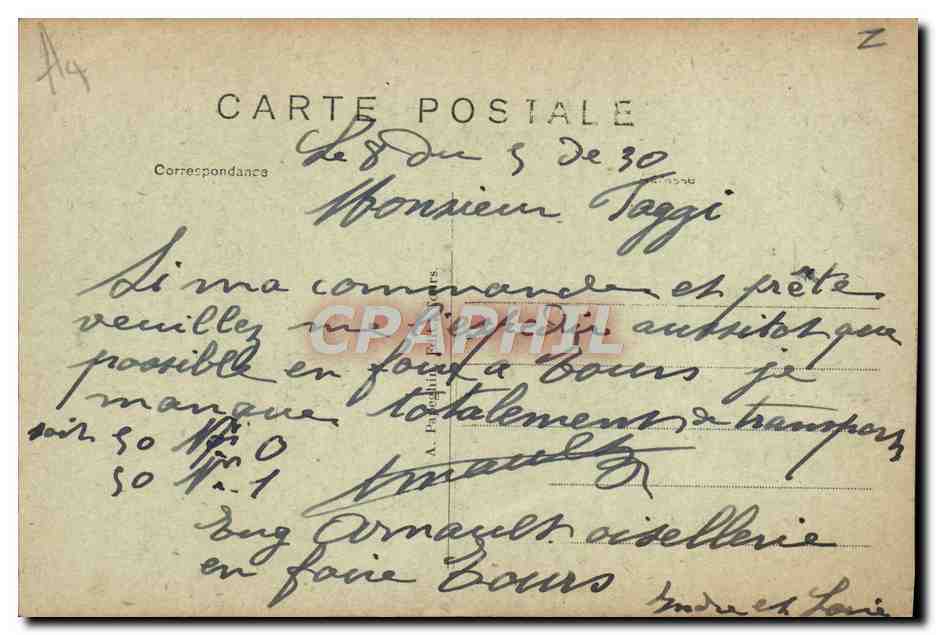 A4
Z
CARTE POSTALE
Le 8 du 5 de 30
Correspondance
Monsieur Taggi
Si ma commande et prête
veuillez me l'expedier aussitot que
possible en foire a Tours je
manque totalement de transport
soit 50 No 0
50 No 1
Arnault
Eug Arnault oisellerie
en foire Tours
Indre et Loire
CPAPHIL